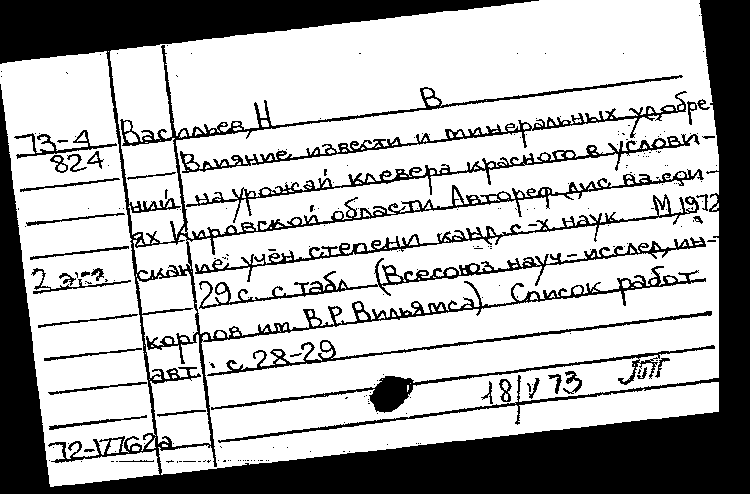 73-4 Васильев, Н В
824 Влияние извести и минеральных удобре-
ний на урожай клевера красного в услови-
ях Кировской области. Автореф. дис на сои-
2 экз скание учен. степени канд. с-х наук. М, 1972
29 с. с табл (Всесоюз. науч-исслед. ин-т
кормов им. В.Р. Вильямса). Список работ
авт.: с. 28-29
18/V 73
72-17762а